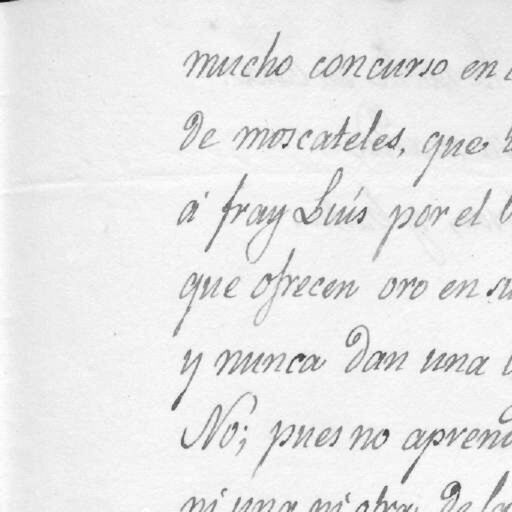 mucho concurso en
de moscateles, que
á fray Luís por el
que ofrecen oro en su
y nunca dan una
No; pues no aprend
ni una ni otra de la